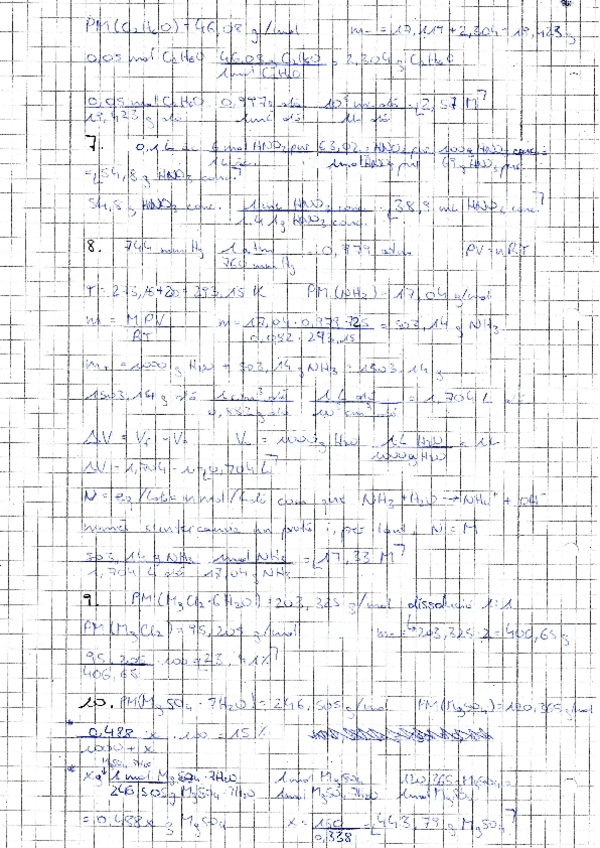 PM(C2H6O)=46,08 g/mol m = 17,119+2,304=19,423 g
0,05 mol C2H6O 46,08 g C2H6O / 1 mol C2H6O = 2,304 g C2H6O
0,05 mol C2H6O / 19,423 g dió 0,9973 g dió / 1 mL dió 10³ mL dió / 1L dió = 2,57 M
7. 0,1 L 6 mol HNO3 pur / 1L 63,02 g HNO3 pur / 1 mol HNO3 pur 100 g HNO3 conc. / 69 g HNO3 pur
= 54,8 g HNO3 conc.
54,8 g HNO3 conc. 1 mL HNO3 conc. / 1,41 g HNO3 conc. = 38,9 mL HNO3 conc.
8. 744 mmHg 1 atm / 760 mmHg = 0,979 atm PV=nRT
T = 273,15+20=293,15 K PM(NH3)=17,04 g/mol
m = MPV / RT m = 17,04·0,979·725 / 0,082·293,15 = 503,14 g NH3
m = 1000 g H2O + 503,14 g NH3 = 1503,14 g
1503,14 g dió 1 cm³ dió / 0,882 g dió 1 L dió / 10³ cm³ dió = 1,704 L dió
ΔV = Vf - V0 V0 = 1000 g H2O 1L H2O / 1000 g H2O = 1L
ΔV = 1,704 - 1 = 0,704 L
N = eq/L dió = n mol/L dió com que NH3 + H2O → NH4⁺ + OH⁻
només s'intercanvia un protó i, per tant, N = M
503,14 g NH3 / 1,704 L dió 1 mol NH3 / 17,04 g NH3 = 17,33 M
9. PM(MgCl2·6H2O)=203,325 g/mol dissolució 1:1
PM(MgCl2)=95,205 g/mol m = 203,325·2=406,65 g
95,205 / 406,65 ·100 = 23,41%
10. PM(MgSO4·7H2O)=246,505 g/mol PM(MgSO4)=120,365 g/mol
* 0,488·x / 1000 + x ·100 = 15%
* x g MgSO4·7H2O 1 mol MgSO4·7H2O / 246,505 g MgSO4·7H2O 1 mol MgSO4 / 1 mol MgSO4·7H2O 120,365 g MgSO4 / 1 mol MgSO4 =
= 0,488x g MgSO4 x = 150 / 0,338 = 443,79 g MgSO4